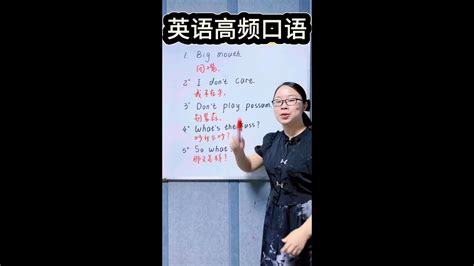 英语高频口语
1. Big mouth.
2. I don't care.
我不在乎.
3. Don't play possum.
别装蒜.
4. What's the fuss?
吵什么吵?
5. So what?
那又怎样!